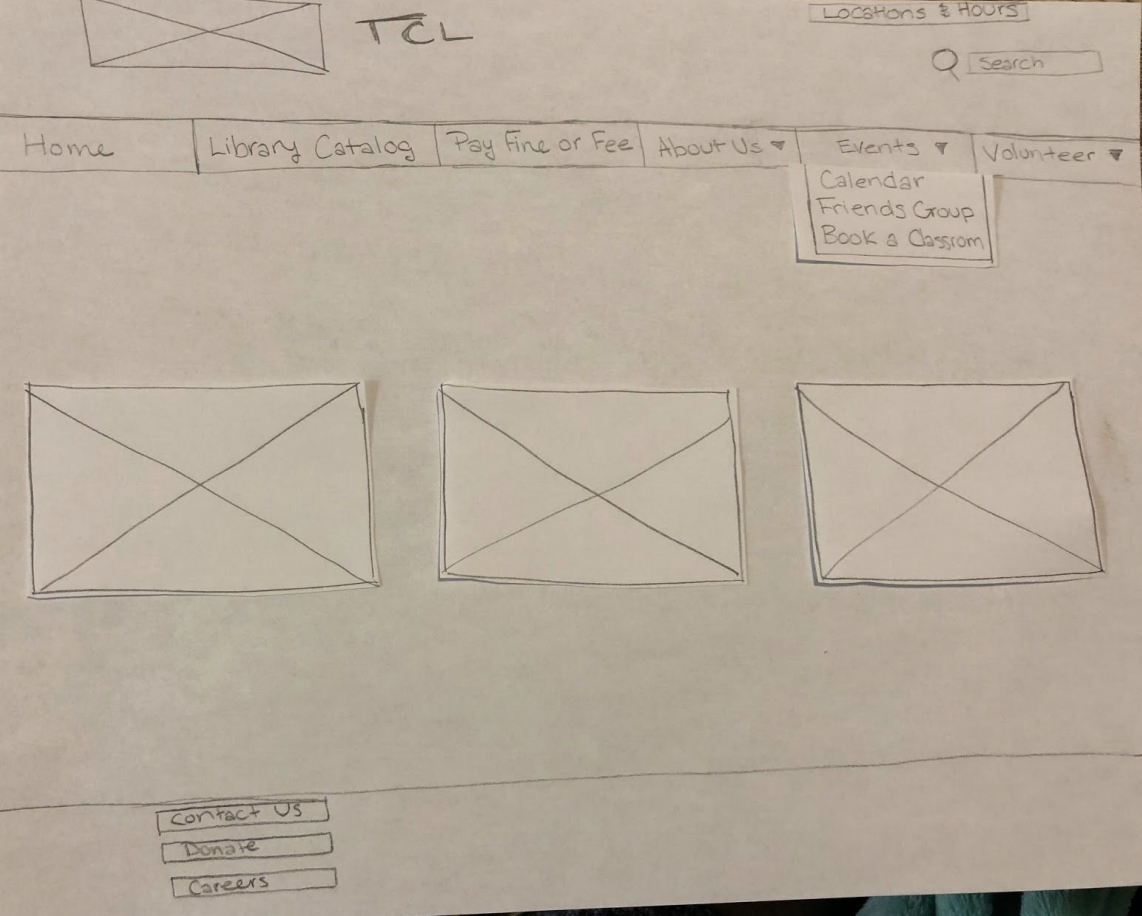 TCL
Locations & Hours
Search
Home
Library Catalog
Pay Fine or Fee
About Us ▼
Events ▼
Volunteer ▼
Calendar
Friends Group
Book a Classrom
Contact Us
Donate
Careers